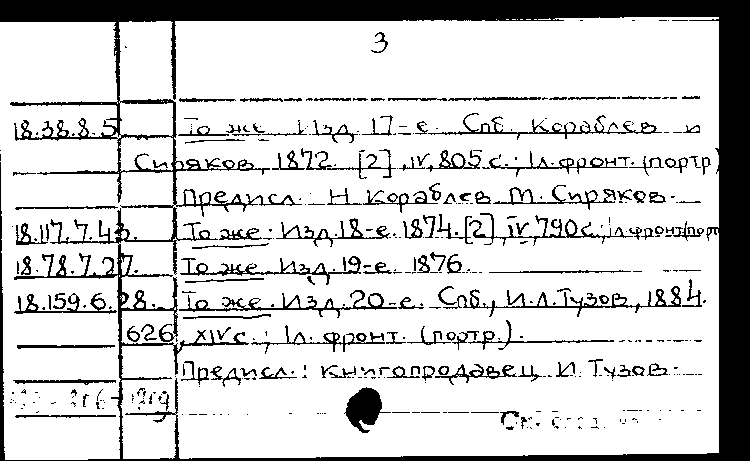 3
18.38.8.5 То же Изд. 17-е. Спб., Кораблев и
Сиряков, 1872. [2], IV, 805 с.; 1 л. фронт. (портр)
Предисл.: Н. Кораблев, М. Сиряков.
18.117.7.43. То же. Изд. 18-е. 1874. [2], IV, 790 с.; 1 л фронт (порт
18.78.7.27. То же. Изд. 19-е. 1876.
18.159.6.28. То же. Изд. 20-е. Спб., И.Л. Тузов, 1884.
626, XIV с.; 1 л. фронт. (портр.).
Предисл.: Книгопродавец И. Тузов.
1919
См.